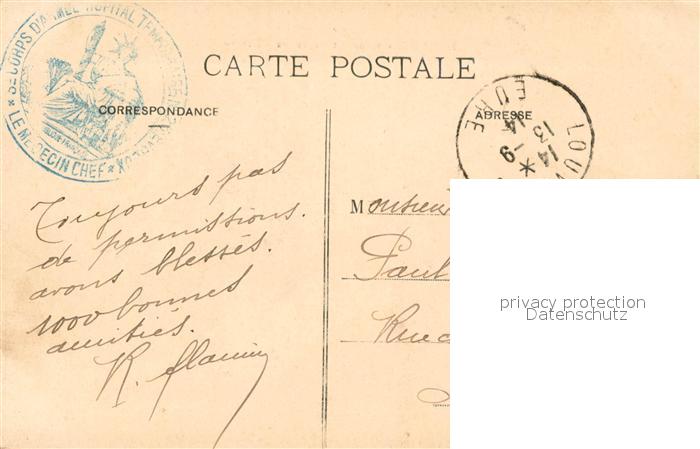 3E CORPS D'ARMEE HOPITAL
LE MEDECIN CHEF
CARTE POSTALE
CORRESPONDANCE
ADRESSE
LOUV
EURE
14 * 
13 -9
14
Toujours pas
de permissions.
avons blessés.
1000 bonnes
amitiés.
Monsieur
Paul
Rue
privacy protection
Datenschutz